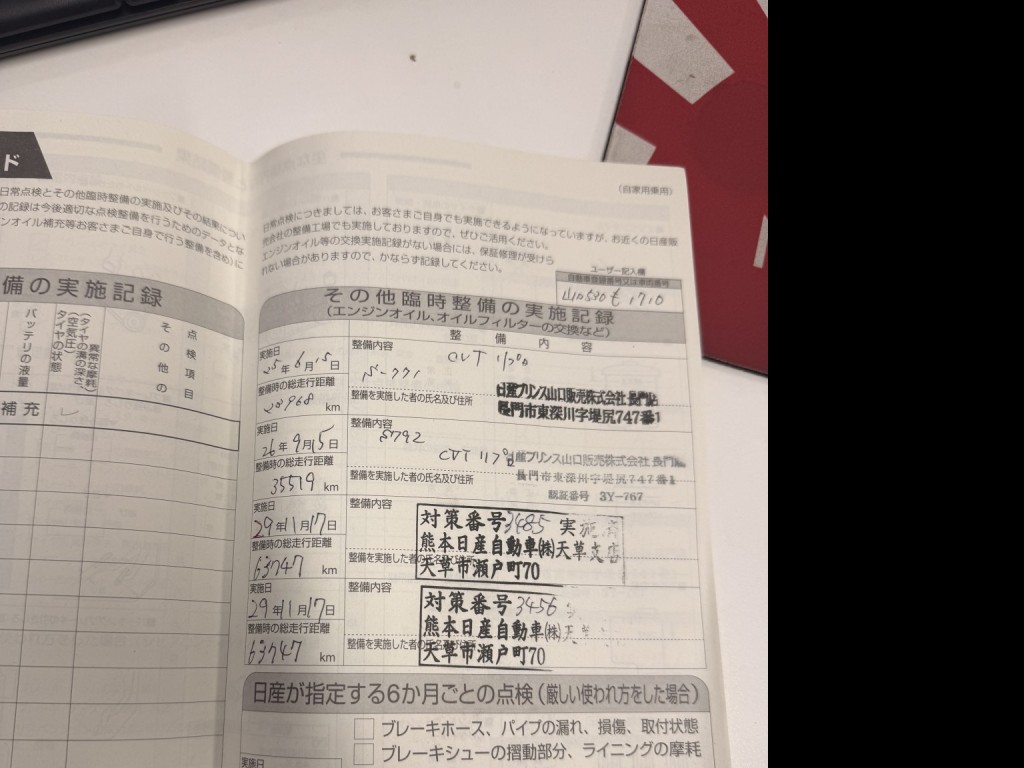 ド
日常点検とその他臨時整備の実施及びその結果につい
の記録は今後適切な点検整備を行うためのデータとな
ンオイル補充等お客さまご自身で行う整備を含め)に
備の実施記録
バッテリの液量
タイヤの状態
(空気圧)
(タイヤの溝の深さ、
異常な摩耗)
その他の
点検項目
補充
(自家用乗用)
日常点検につきましては、お客さまご自身でも実施できるようになっていますが、お近くの日産販
売会社の整備工場でも実施しておりますので、ぜひご活用ください。
エンジンオイル等の交換実施記録がない場合には、保証修理が受けら
れない場合がありますので、かならず記録してください。
ユーザー記入欄
自動車登録番号又は車両番号
山口530 も 1710
その他臨時整備の実施記録
(エンジンオイル、オイルフィルターの交換など)
整備内容
実施日
25年6月15日
整備内容
CVT リプロ
整備時の総走行距離
28968 km
整備を実施した者の氏名及び住所
日産プリンス山口販売株式会社 長門店
長門市東深川字堤尻747番1
実施日
26年9月15日
整備内容
5792
CVT リプロ
整備時の総走行距離
35519 km
整備を実施した者の氏名及び住所
日産プリンス山口販売株式会社 長門店
長門市東深川字堤尻747番1
認証番号 3Y-767
実施日
29年11月17日
整備内容
対策番号3485 実施済
熊本日産自動車(株)天草支店
天草市瀬戸町70
整備時の総走行距離
63747 km
整備を実施した者の氏名及び住所
実施日
29年11月17日
整備内容
対策番号3456
熊本日産自動車(株)天草
天草市瀬戸町70
整備時の総走行距離
63747 km
整備を実施した者の氏名及び住所
日産が指定する6か月ごとの点検(厳しい使われ方をした場合)
ブレーキホース、パイプの漏れ、損傷、取付状態
ブレーキシューの摺動部分、ライニングの摩耗
実施日